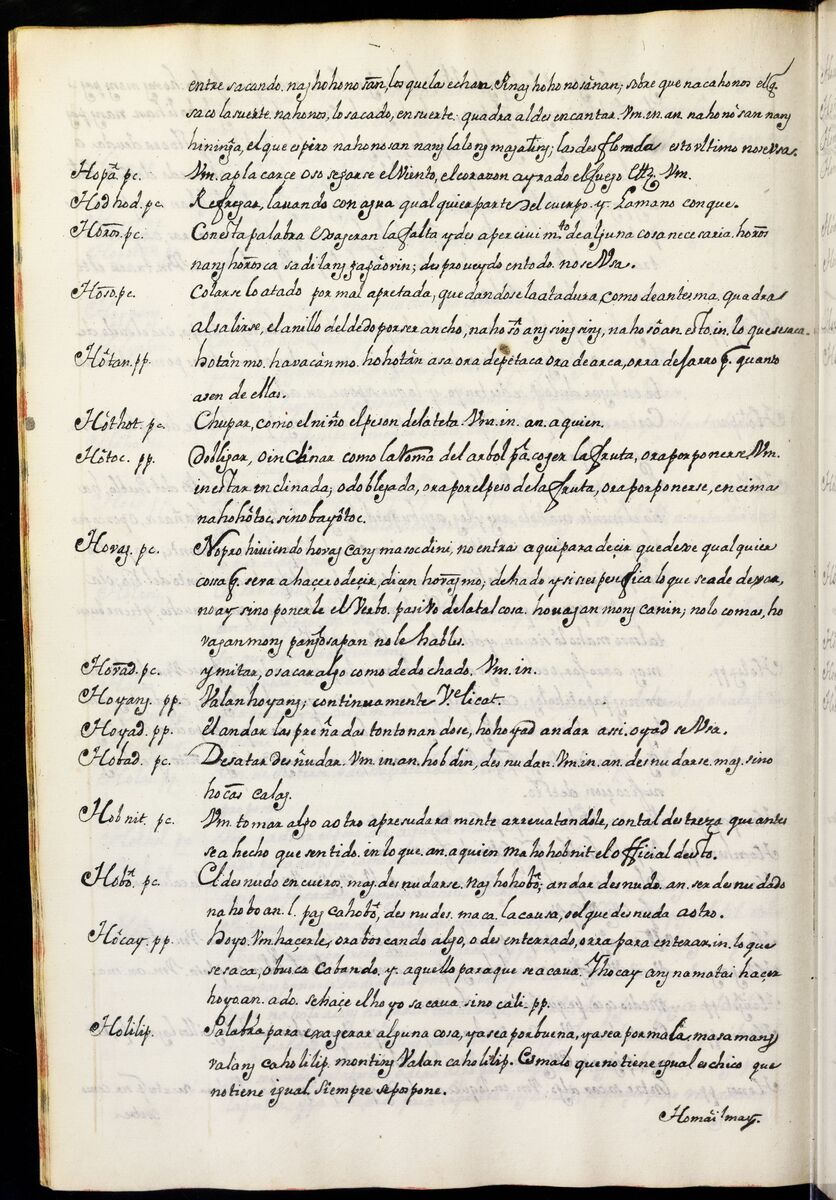 entre sacando. nag hohono sān, los que la echan. Rnag ho ho no sānan; sobre que nacahonos ell q̃.
saco la suerte. nahonos, lo sacado, en suerte. quadra al des encantar. Vm. in. an. na honōsan nang
hininga, el que espiro nahonosan nang lalong magaling; las des florada esto vltimo nose Vsa.
Hopā. pc. Vm. apla carçe o so segarse el Viento, el corazon ayrado el fuego Ettz. Vm.
Hodhod. pc. Refregar, lauando con agua qual quier parte del cuerpo. y. La mano conque.
Horos. pc. Con esta palabra exageran la falta y des aper civi m.to de alguna cosa necesaria. horos
nang horos ca sa dilang gagāovin; des proveydo en todo. no se Vsa.
Hoso. pc. Colarse lo atado por mal apretada, que dandose la atadura, como de antes ma. quadra
al salirse, el anillo del dedo por ser ancho, na hosō ang sing sing, na hosōan. esto. in. lo que se saca.
Hōtan. pp. hotānmo. havacānmo. hohotān asa ora de petaca ora de arca, orra de jarro q̃. quanto
asen de ellas.
Hōthot. pc. Chupar, como el niño el peson de la teta. Vm. in. an. a quien.
Hōtoc. pp. Doblegar, o inclinar como la Roma del arbol pā. coger la fruta, ora por ponerse Vm.
in estar inclinada; o doblegada, ora por el peso de la fruta, ora por ponerse, en cima
nahohōtoc, sino bayōtoc.
Hovag. pc. No pro hiuiendo hovag cang masoc dini, no entra aqui para deçir que dexe qual quier
cosa q̃. sera a haçer o deçir, diçen hovāg mo; dehado y si es pesifica lo que se a de dexar,
no ay sino ponerle el Verbo. pasivo de la tal cosa. houagan mong canin; no lo comas, ho
vagan mong pangosapan no le hables.
Hovad. pc. ymitar, o sacar algo como de dechado. Vm. in.
Hoyang. pp. Valan hoyang; continuamente Velicat.
Hoyad. pp. El andar las preñadas tontonandose, hohoyad andar assi. oyad se Vsa.
Hobad. pc. Desatar desñudar. Vm. in. an. hobdin, des nudan. Vm. in. an. des nudarse. mag. sino
hocās calag.
Hobnit. pc. Vm. tomar algo a otro apresudara mente arrevatandole, con tal destreza que antes
sea hecho que sentido. in lo que. an. a quien ma hohobnit el official desto.
Hobō. pc. El desnudo en cueros. mag. des nudarse. Nag hohobō; andar desnudo. an. ser des nudado
na hoboan. l. pag cahobō, des nudes. maca. la causa, o el que desnuda a otro.
Hōcay. pp. hoyo. Vm. haçerle, ora boscando algo, o des enterrado, orra para enterar. in. lo que
se saca, o busca cabando. y. aquello para que se a caua. Yhocay ang na matai haçer
hoyo an. ado. sehaçe el hoyo sa caua. sino cali. pp.
Holilip. Palabra para exagerar alguna cosa, ya sea por buena, ya sea por mala, masamang
valang caholilip. monting Valan caholilip. Es malo que no tiene igual es chico que
no tiene igual. Siempre se pospone.
Homāilmay.